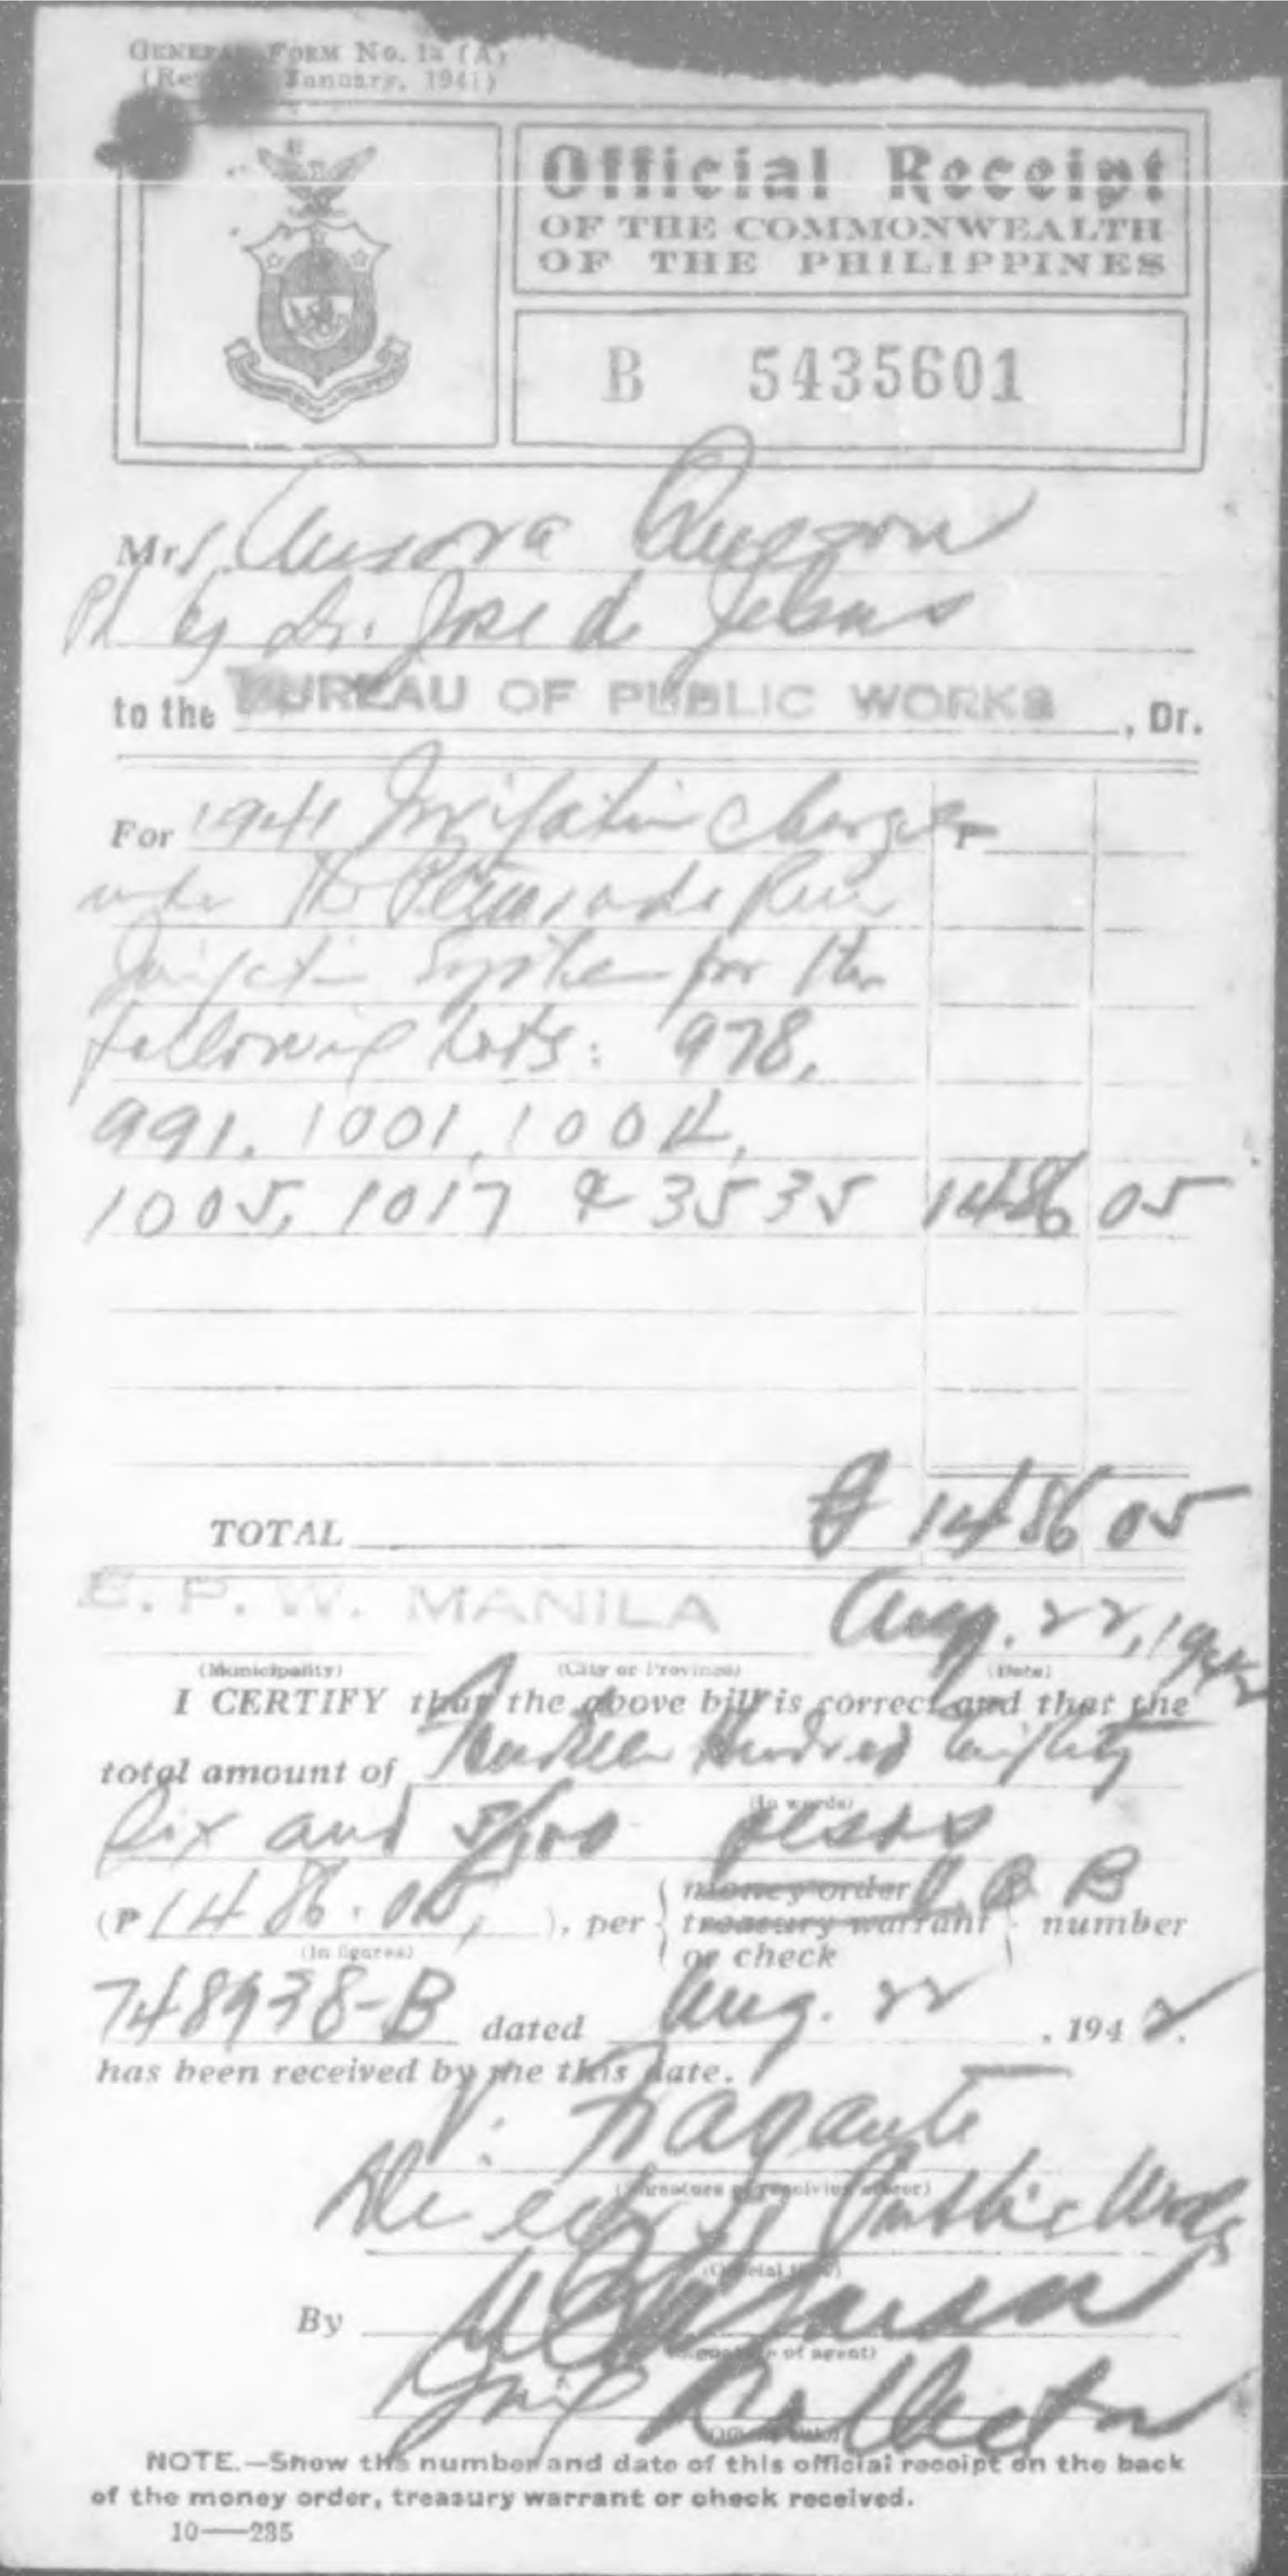 GENERAL FORM No. 13 (A)
(Revised January, 1941)
Official Receipt
OF THE COMMONWEALTH
OF THE PHILIPPINES
B 5435601
Mrs. Aurora Quezon
Pd by Dr. Jose de Jesus
to the BUREAU OF PUBLIC WORKS, Dr.
For 1941 Irrigation Charges ₱
under the Peñaranda River
Irrigation System for the
following lots: 978,
991, 1001, 1004,
1005, 1017 & 3535 1486 05
TOTAL ₱ 1486 05
B. P. W. MANILA Aug. 22, 1942
(Municipality) (City or Province) (Date)
I CERTIFY that the above bill is correct and that the
total amount of Fourteen Hundred Eighty
(In words)
Six and 5/100 pesos
(₱1486.05), per { money order
treasury warrant
or check } P. N. B number
(In figures)
748938-B dated Aug. 22, 1942.
has been received by me this date.
V. Fragante
(Signature of receiving officer)
Director of Public Works
(Official title)
By
(Signature of agent)
Collector
(Official title)
NOTE.—Show the number and date of this official receipt on the back
of the money order, treasury warrant or check received.
10——235